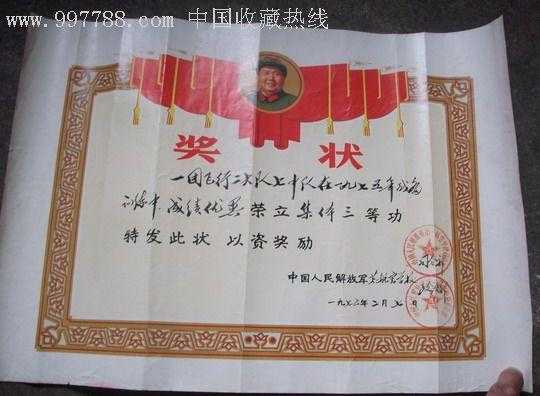 www.997788.com 中国收藏热线
奖状
一团飞行二大队七中队在一九七五年战备
训练中成绩优异荣立集体三等功
特发此状 以资奖励
中国人民解放军
一九七六年二月七日